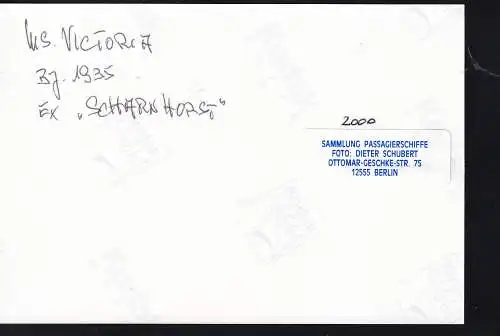 MS. VICTORIA
Bj. 1935
EX „SCHARNHORST“
2000
SAMMLUNG PASSAGIERSCHIFFE
FOTO: DIETER SCHUBERT
OTTOMAR-GESCHKE-STR. 75
12555 BERLIN